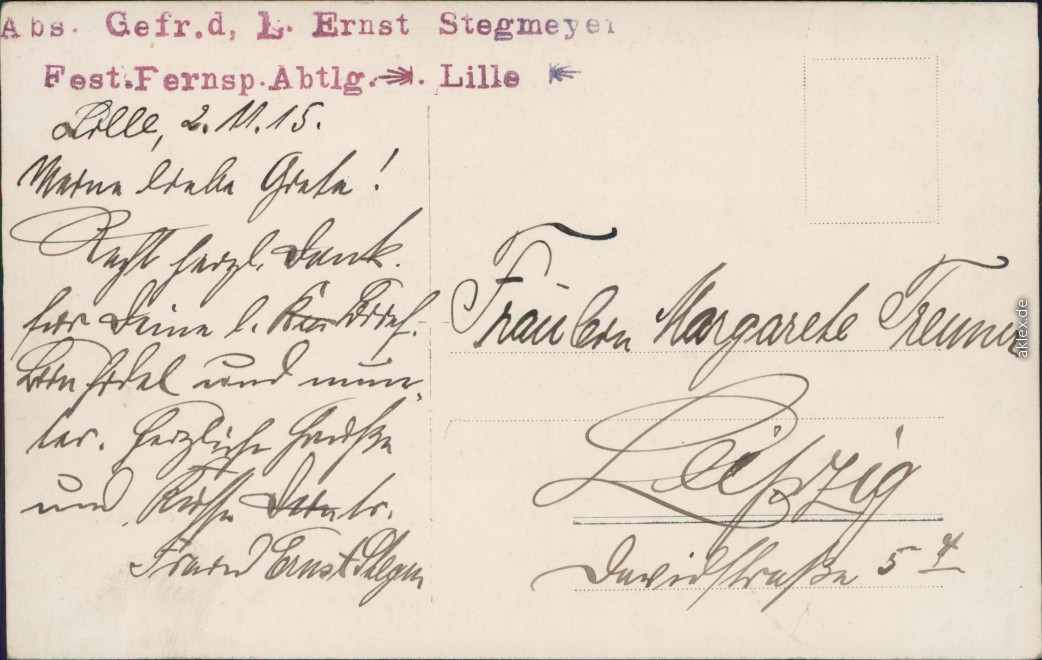 Abs. Gefr.d, L. Ernst Stegmeyer
Fest.Fernsp.Abtlg. Lille
Lille, 2.11.15.
Meine liebe Grete!
Recht herzl. Dank.
für Deine l. Brief.
Bin fidel und mun-
ter. Herzliche Grüße
und Küsse Deines
Freund Ernst
Fräulein Margarete
Leipzig
Davidstraße 5 4
aklex.de